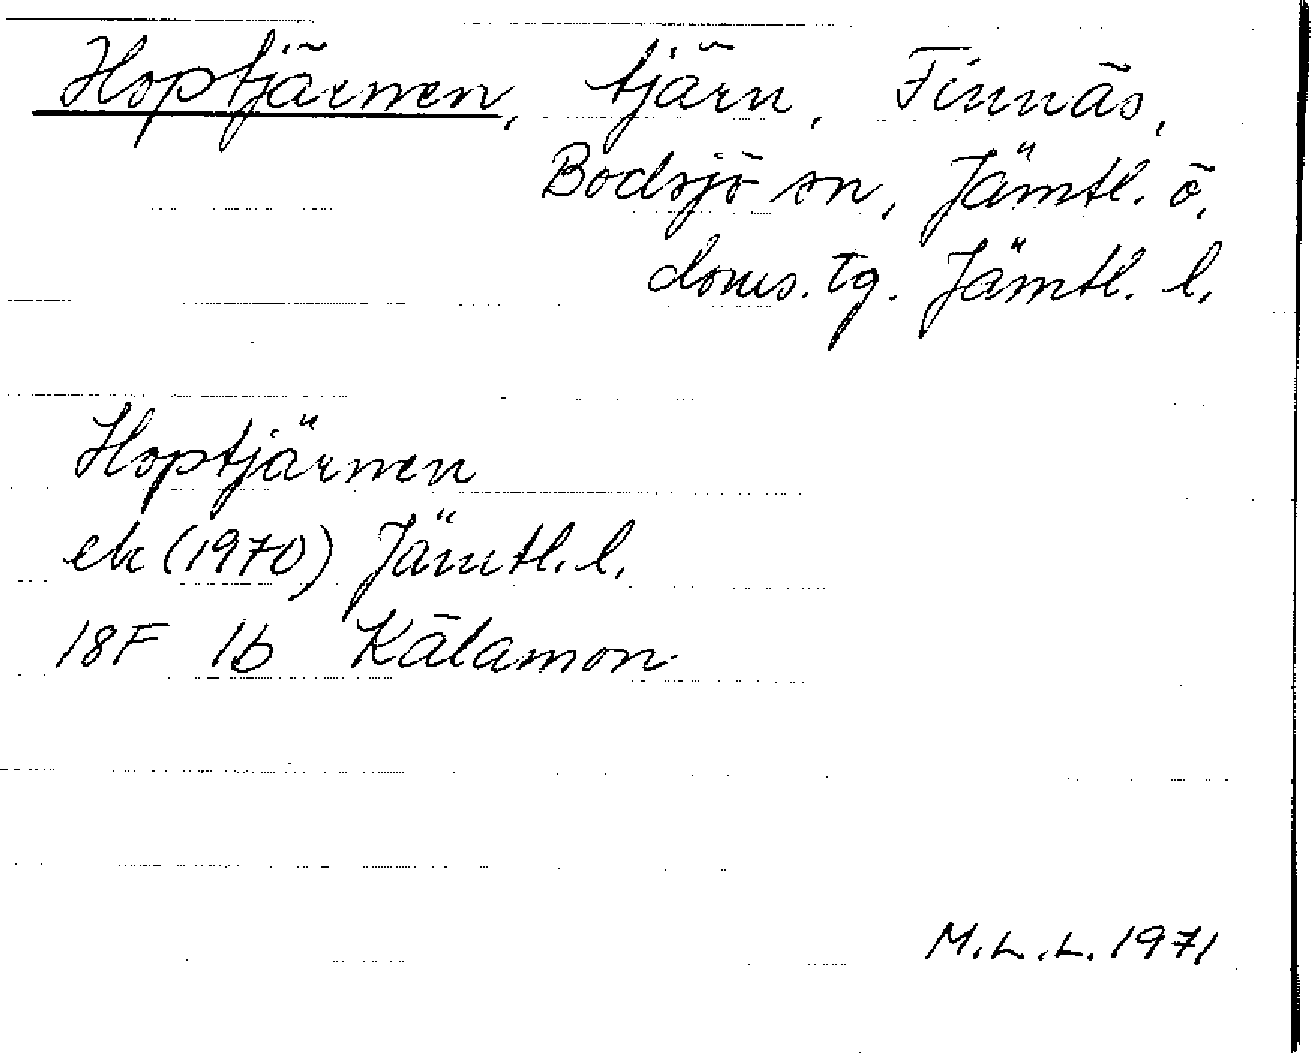 Hoptjärnen, tjärn, Finnäs,
Bodsjö sn, Jämtl. ö.
doms. tg. Jämtl. l.
Hoptjärnen
ek (1970) Jämtl. l.
18F 1b Kälamon
M.L.L. 1971